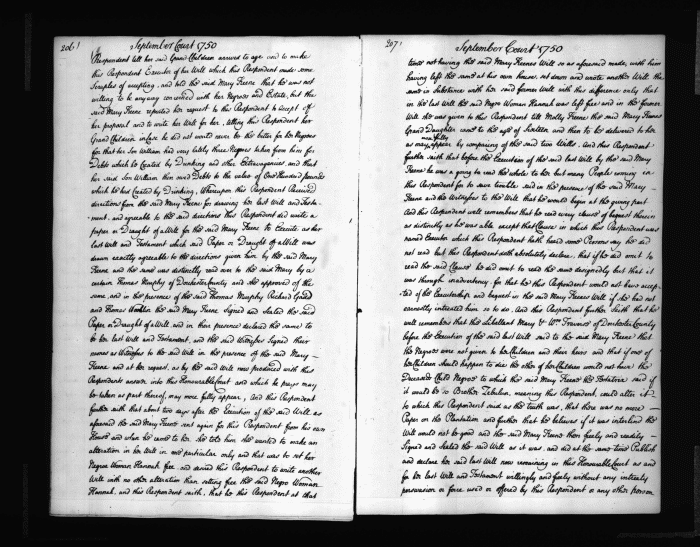 206
September Court 1750
Respondent till her said Grand Children arrives to age and to make
this Respondent Executor of her Will which this Respondent made some
Scruples of accepting, and told the said Mary Frene that he was not
willing to be anyway concerned with her Negroes and Estate, but the
said Mary Frene repeated her request to this Respondent to accept of
her proposal and to write her Will for her, telling this Respondent her
Grand Children in Case he did not wou'd never be the better for her Negroes
for that her Son William had very lately three Negroes taken from him for
Debts which he Created by Drinking and other Extravagancies and that
her said Son William then owed Debts to the value of One Hundred pounds
which he had Created by Drinking, Whereupon this Respondent Received
directions from the said Mary Frene for drawing her last Will and Testa-
ment, and agreeable to the said directions this Respondent did write a
paper or Draught of a Will for the said Mary Frene to Execute as her
last Will and Testament which said Paper or Draught of a Will was
drawn exactly agreeable to the directions given him by the said Mary
Frene and the same was distinctly read over to the said Mary by a
certain Thomas Murphy of Dorchester County and she approved of the
same, and in the presence of the said Thomas Murphy Richard
and Thomas the said Mary Frene Signed and Sealed the said
Paper or Draught of a Will and in their presence declared the same to
be her last Will and Testament, and the said Witnesses Signed their
names as Witnesses to the said Will in the presence of the said Mary
Frene and at her request, as by the said Will now produced with this
Respondents answer into this Honourable Court and which he prays may
be taken as part thereof, may more fully appear, And this Respondent
further saith that about two days after the Execution of the said Will as
aforesaid the said Mary Frene sent again for this Respondent from his own
House and when he came to her, she told him she wanted to make an
alteration in her Will in one particular only and that was to set her
Negroe Woman Hannah free, and desired this Respondent to write another
Will with no other alteration than setting free the said Negro Woman
Hannah, and this Respondent saith, that he this Respondent at that
207
September Court 1750
time not having the said Mary Frenes Will so as aforesaid made, with him
having left the same at his own house, set down and wrote another Will the
same in Substance with her said former Will with this difference only that
in the last Will the said Negro Woman Hannah was left free and in the former
Will she was given to this Respondent till Molly Frene the said Mary Frenes
Grand Daughter came to the age of Sixteen and then to be delivered to her
as may more fully appear by comparing of the said two Wills. And this Respondent
further saith that before the Execution of the said last Will by the said Mary
Frene he was a going to read the whole to her but many People coming in
this Respondent for to save trouble said in the presence of the said Mary
Frene and the Witnesses to the Will that he would begin at the giving part
And this Respondent well remembers that he read every clause of bequest therein
as distinctly as he was able except that Clause in which this Respondent was
named Executor which this Respondent hath heard some Persons say he did
not read but this Respondent saith absolutely declare, that if he did omit to
read the said Clause he did omit to read the same designedly but that it
was through inadvertency for that he this Respondent would not have accep-
ted of the Executorship and bequest in the said Mary Frenes Will if she had not
earnestly intreated him so to do. And this Respondent further Saith that he
well remembers that the Libellant Mary & Wm. Travers of Dorchester County
before the Execution of the said last Will said to the said Mary Frene that
the Negroes were not given to her Children and their heirs and that if one of
her Children should happen to die the other of her Children would not have the
Deceased Child Negroes to which the said Mary Frene the Testatrix said if
it would be so Brother Zebulon, meaning this Respondent, could alter it
to which this Respondent said as the truth was, that there was no more
Paper on the Plantation and further that he believes if it was interlined the
Will would not be good and the said Mary Frene then freely and readily
Signed and Sealed the said Will as it was, and did at the same time Publish
and declare her said last Will now remaining in this Honourable Court as and
for her last Will and Testament willingly and freely without any intreaty
persuasion or force used or offered by this Respondent or any other person